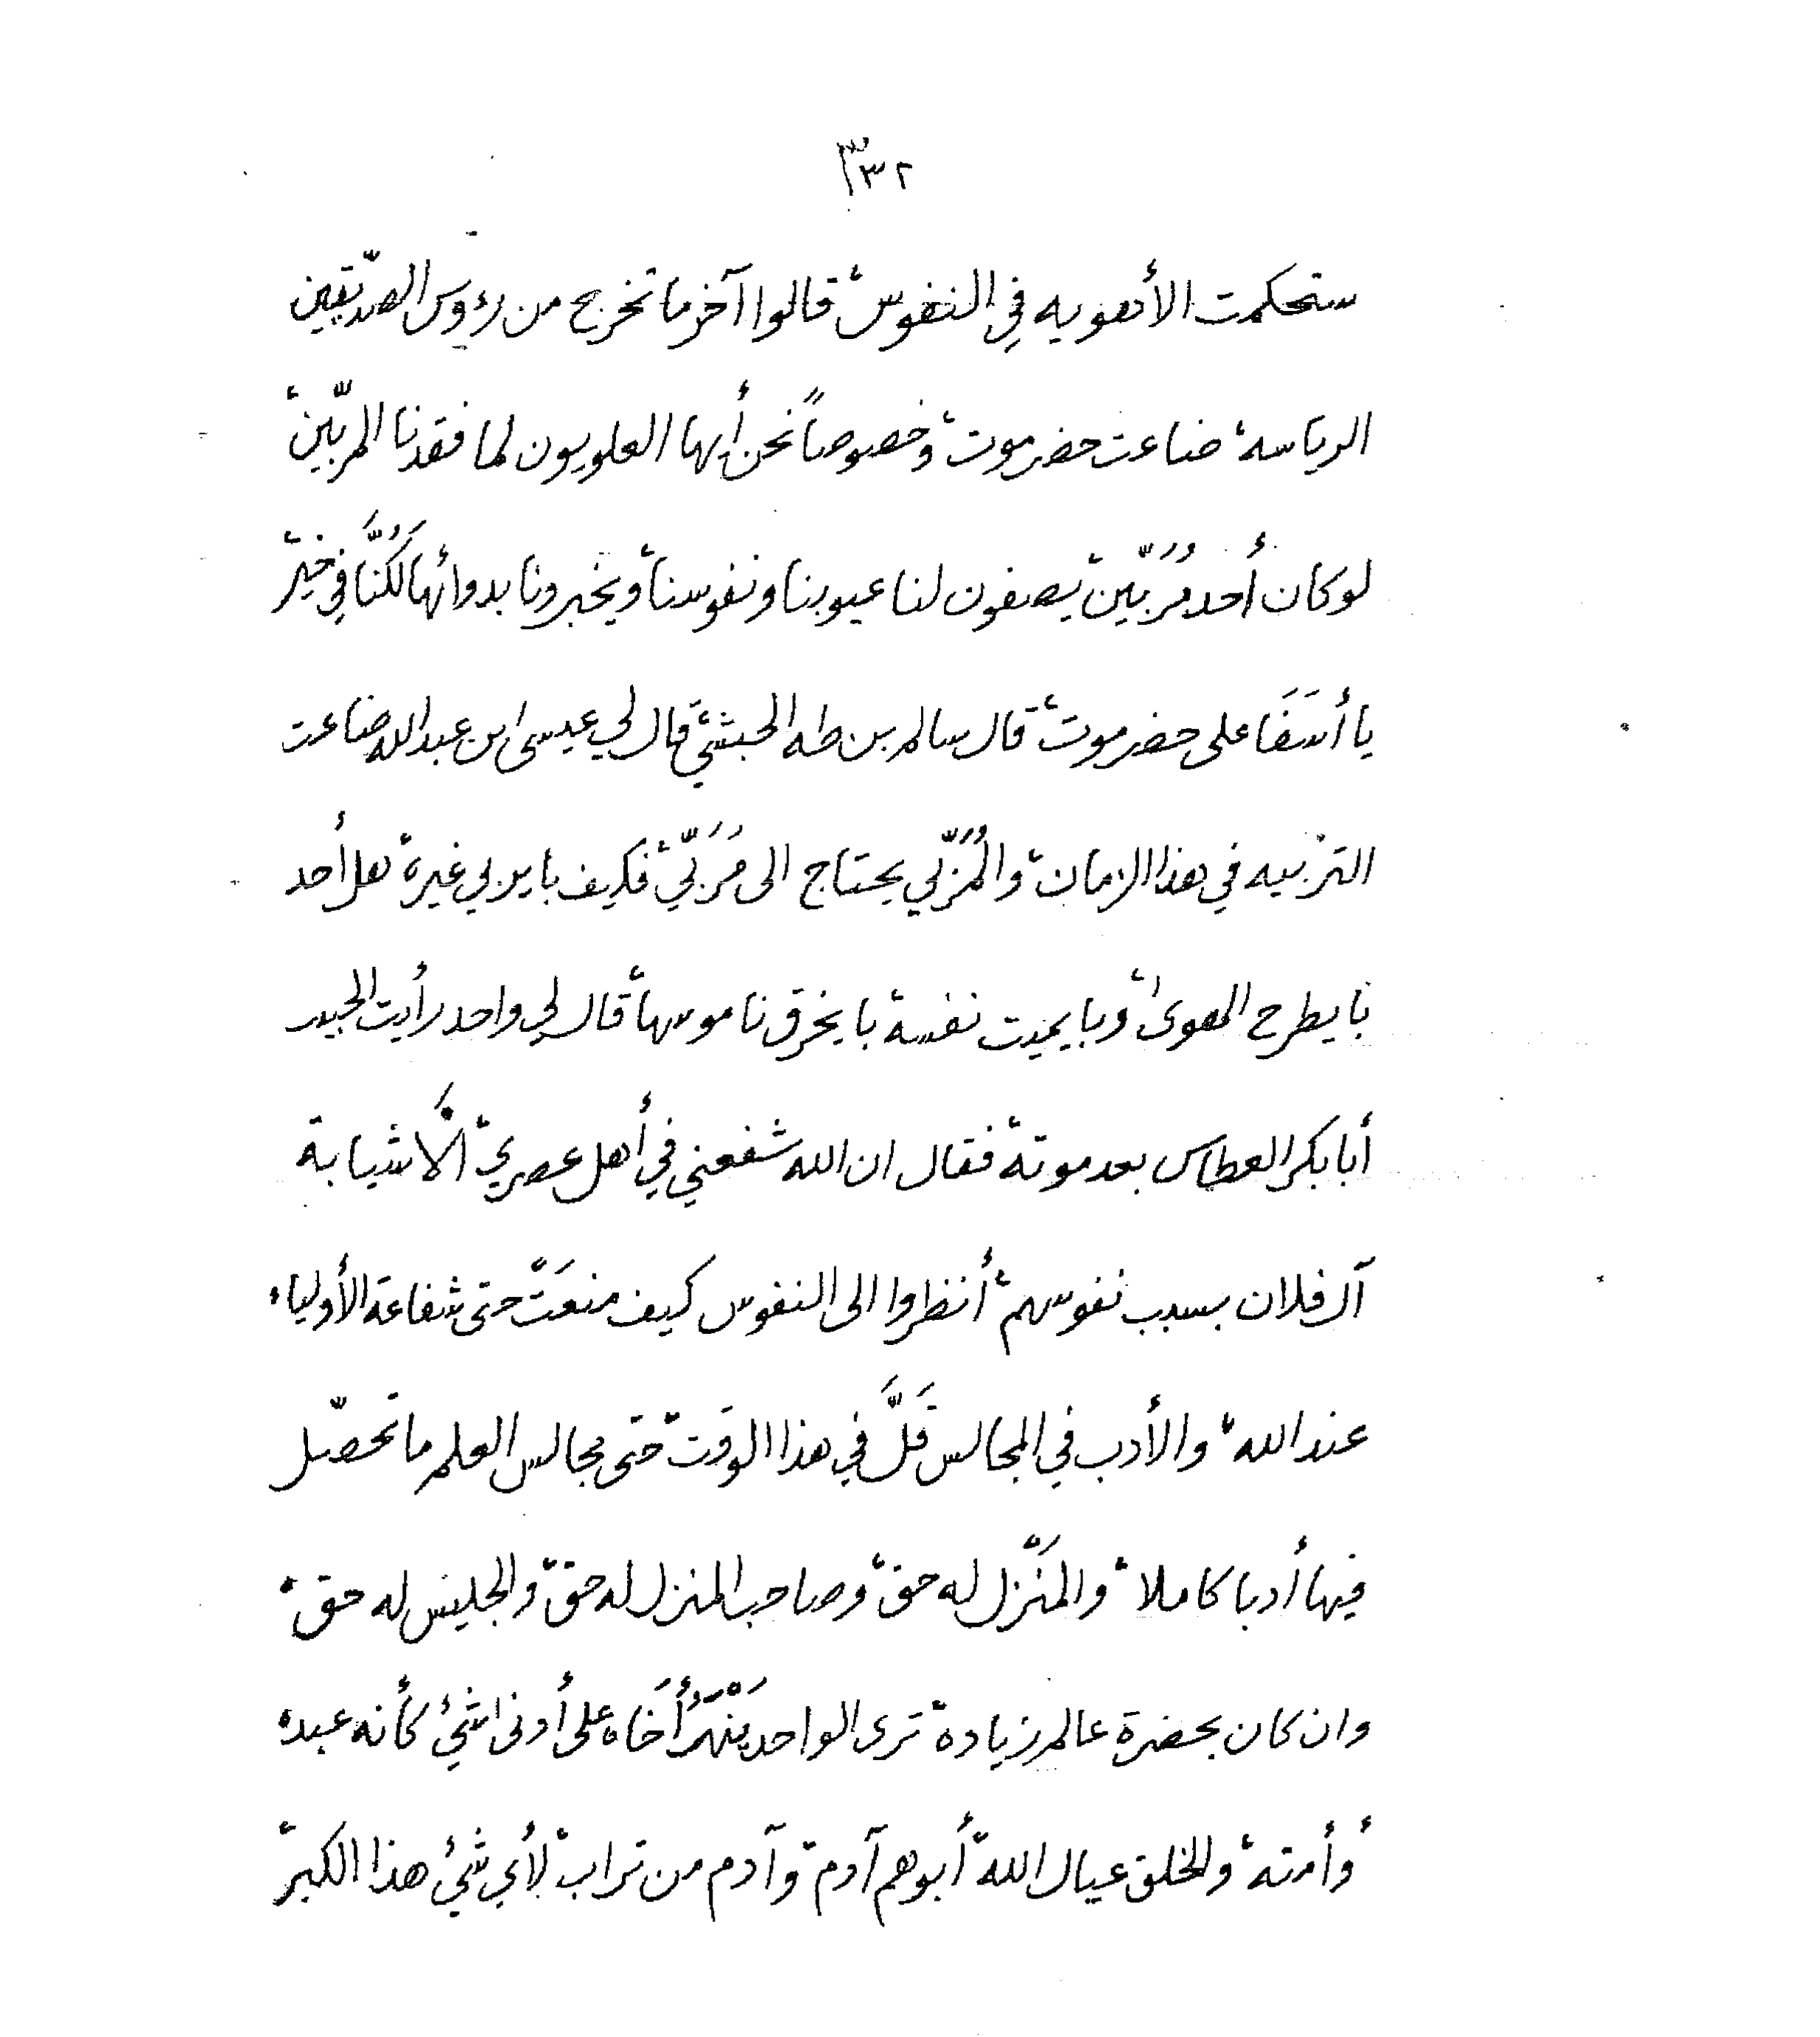 ٣٣٢
ستحكمت الأهويه فِي النفوس، قالوا آخر ما تخرج من رؤوس الصدّيقين
الرياسه، ضاعت حضرموت، وخصوصاً نحن أيها العلويون لما فقدنا المربّين،
لو كان أحد مُرَبّين يصفون لنا عيوبنا ونفوسنا، ويخبرونا بدوائها لَكُنَّا في خير،
يا أسَفَا على حضرموت، قال سالم بن طه الحبشي، قال لي عيسى ابن عبدالله ضاعت
التربيه في هذا الزمان، والمُرَبّي يحتاج الى مُرَبّي، فكيف با يربي غيره، هل أحد
با يطرح الهوى، وبا يميت نفسه، با يخرق ناموسها، قال لي واحد رأيت الحبيب
أبابكر العطاس بعد موته، فقال ان الله شفعني في أهل عصري، الَّا شيابة
آل فلان بسبب نفوسهم، أنظروا الى النفوس كيف منعَتْ حتى شفاعة الأولياء
عند الله، والأدب في المجالس قَلَّ في هذا الوقت، حتى مجالس العلم ما تحصّل
فيها أدبا كاملا، والمَنْزل له حق، وصاحب المنزل له حق، والجليس له حق،
وان كان بحضرة عالم زيادة، ترى الواحد يَنْهَرُ أخَاه على أدنى شيْ كأنه عبده
أو أمته، والخلق عيال الله، أبوهم آدم، وآدم من تراب، لأي شيْ هذا الكبر،